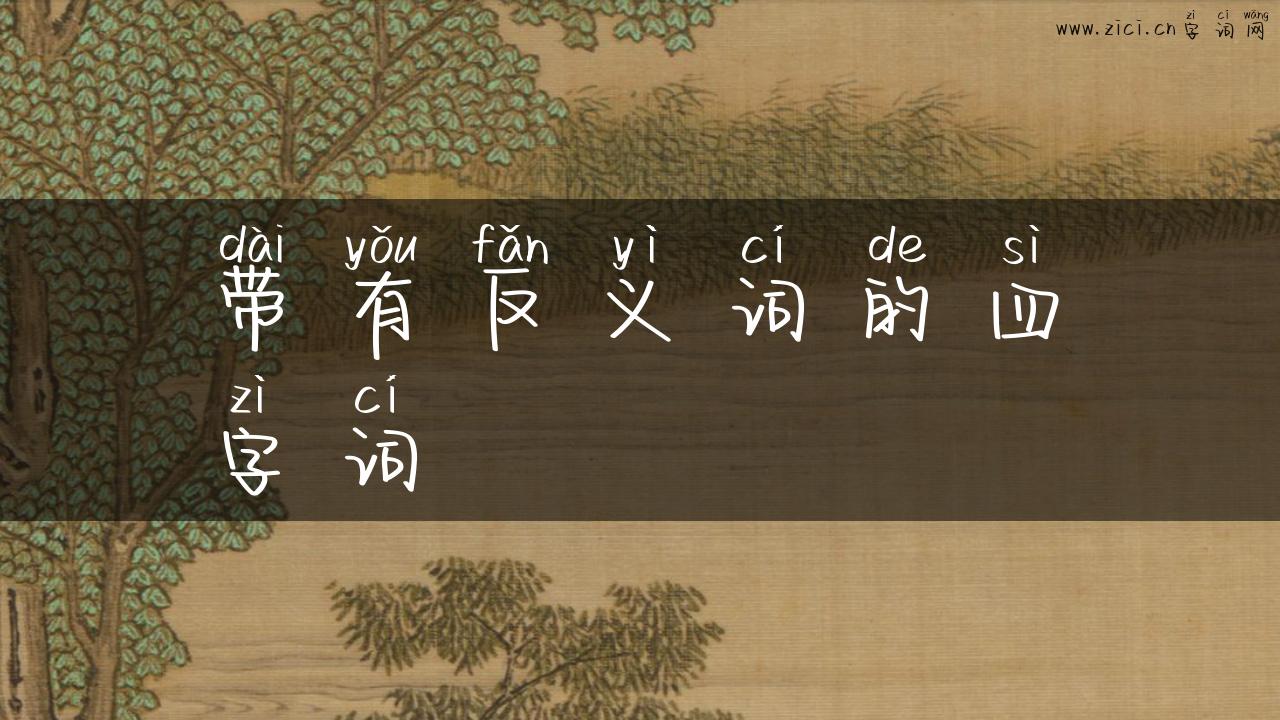 zì cí wǎng
www.zici.cn 字词网
dài yǒu fǎn yì cí de sì
带有反义词的四
zì cí
字词